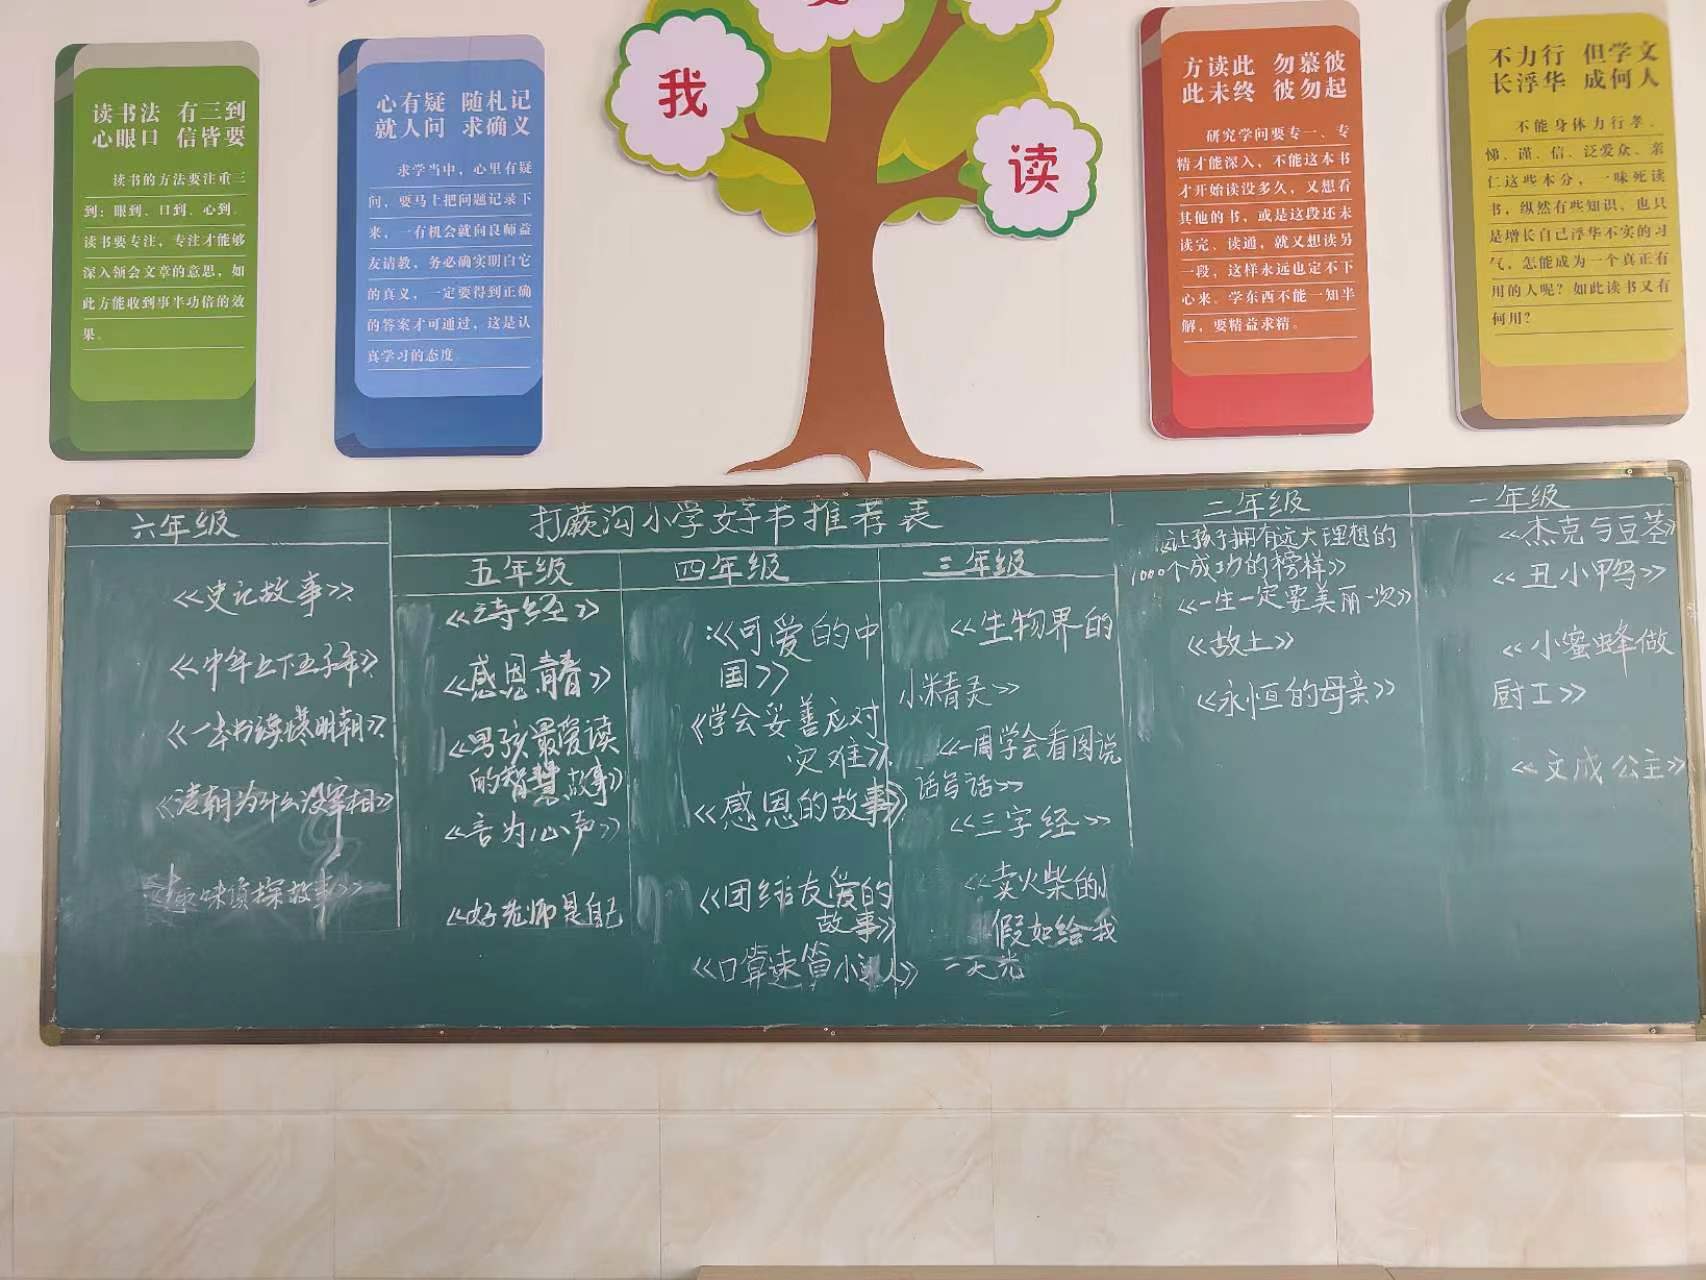 我
读
读书法 有三到
心眼口 信皆要
读书的方法要注重三
到：眼到、口到、心到。
读书要专注，专注才能够
深入领会文章的意思，如
此方能收到事半功倍的效
果。
心有疑 随札记
就人问 求确义
求学当中，心里有疑
问，要马上把问题记录下
来，一有机会就向良师益
友请教，务必确实明白它
的真义，一定要得到正确
的答案才可通过，这是认
真学习的态度
方读此 勿慕彼
此未终 彼勿起
研究学问要专一、专
精才能深入，不能这本书
才开始读没多久，又想看
其他的书，或是这段还未
读完、读通，就又想读另
一段，这样永远也定不下
心来。学东西不能一知半
解，要精益求精。
不力行 但学文
长浮华 成何人
不能身体力行孝、
悌、谨、信、泛爱众、亲
仁这些本分，一味死读
书，纵然有些知识，也只
是增长自己浮华不实的习
气，怎能成为一个真正有
用的人呢？如此读书又有
何用？
打蕨沟小学好书推荐表
六年级
《史记故事》
《中华上下五千年》
《一本书读懂明朝》
《清朝为什么没宰相》
《趣味侦探故事》
五年级
《诗经》
《感恩青春》
《男孩最爱读
的智慧故事》
《言为心声》
《好老师是自己
四年级
《可爱的中
国》
《学会妥善应对
灾难》
《感恩的故事》
《团结友爱的
故事》
《口算速算小达人》
三年级
《生物界的
小精灵》
《一周学会看图说
话写话》
《三字经》
《卖火柴的小
假如给我
三天光
二年级
《让孩子拥有远大理想的
1000个成功的榜样》
《一生一定要美丽一次》
《故土》
《永恒的母亲》
一年级
《杰克与豆茎》
《丑小鸭》
《小蜜蜂做
厨工》
《文成公主》